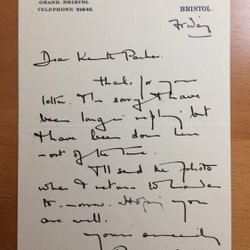 GRAND, BRISTOL
TELEPHONE 21645.
BRISTOL.
Friday
Dear Kenneth Parker
Thank for your
letter. I'm sorry I have
been longer in reply but
I have been down here
most of the time.
I'll send the photo
when I return to London
to-morrow. Hoping you
are well.
Yours sincerely